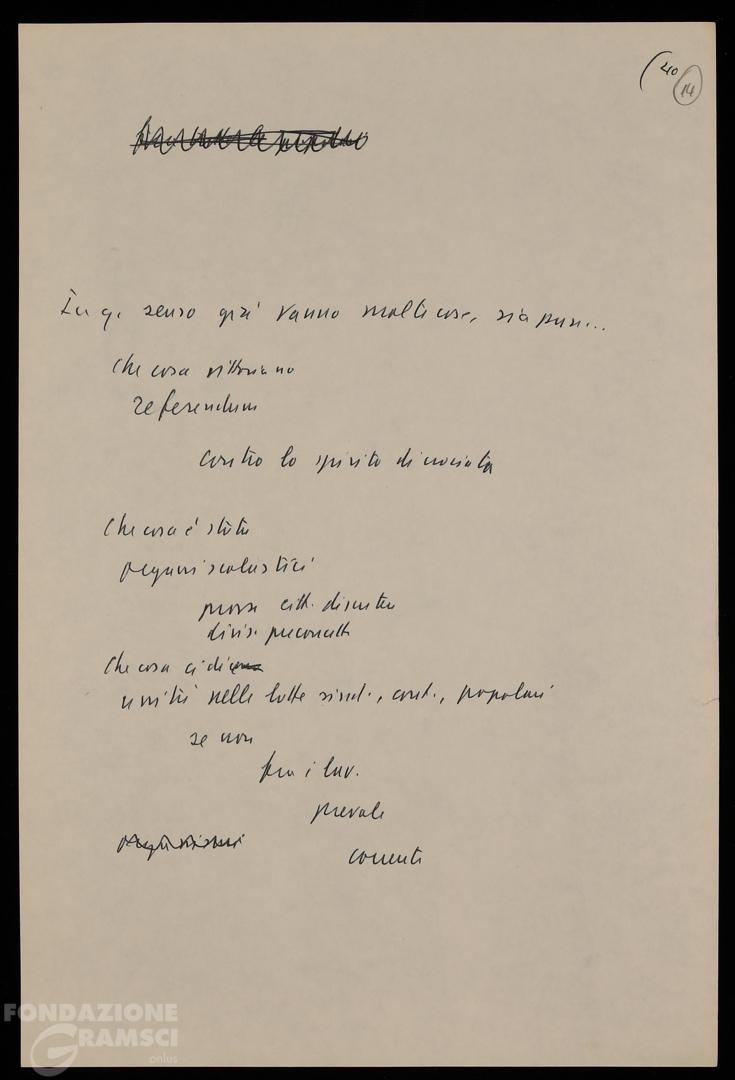 (40
14
In q. senso già vanno molte cose, sia pure...
Che cosa vittoriano
referendum
contro lo spirito di crociata
Che cosa è stata
organi scolastici
prova citt. discutere
divis. preconcette
Che cosa ci dice
unità nelle lotte sind., cont., popolari
se non
fra i lav.
prevale
corrente
FONDAZIONE
GRAMSCI
onlus